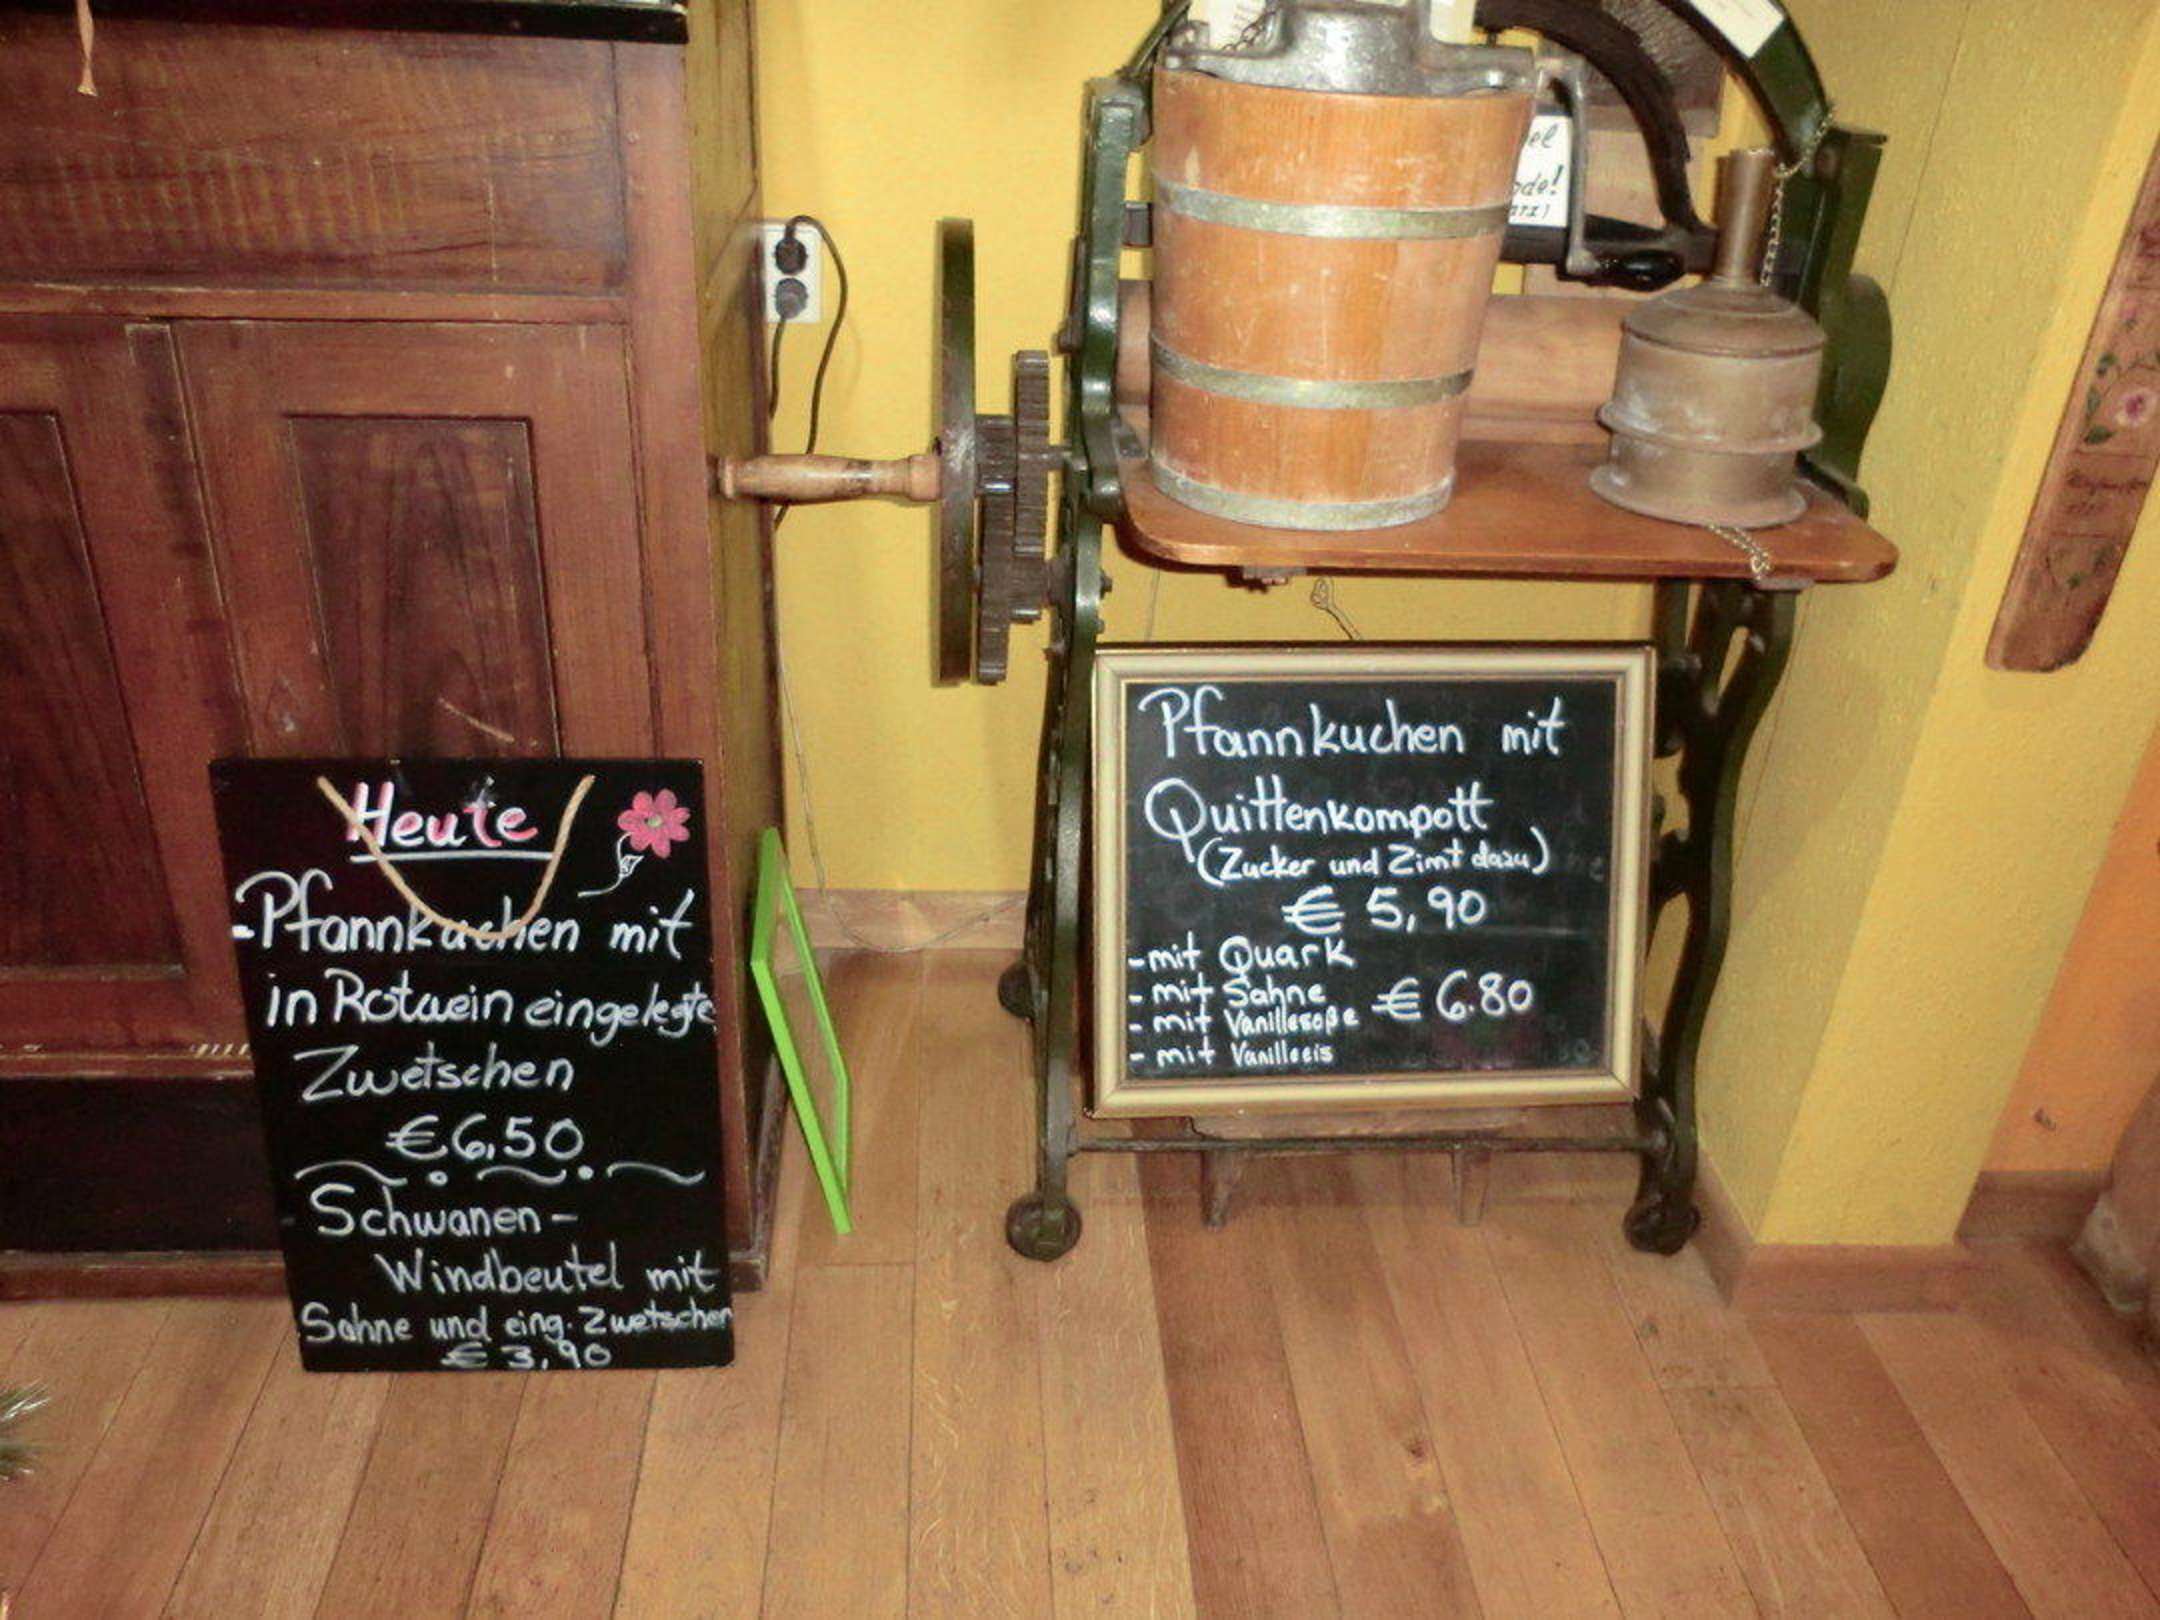 Heute
-Pfannkuchen mit
in Rotwein eingelegte
Zwetschen
€ 6,50
Schwanen-
Windbeutel mit
Sahne und eing. Zwetschen
€ 3,90
Pfannkuchen mit
Quittenkompott
(Zucker und Zimt dazu)
€ 5,90
- mit Quark
- mit Sahne € 6.80
- mit Vanillesoße
- mit Vanilleeis